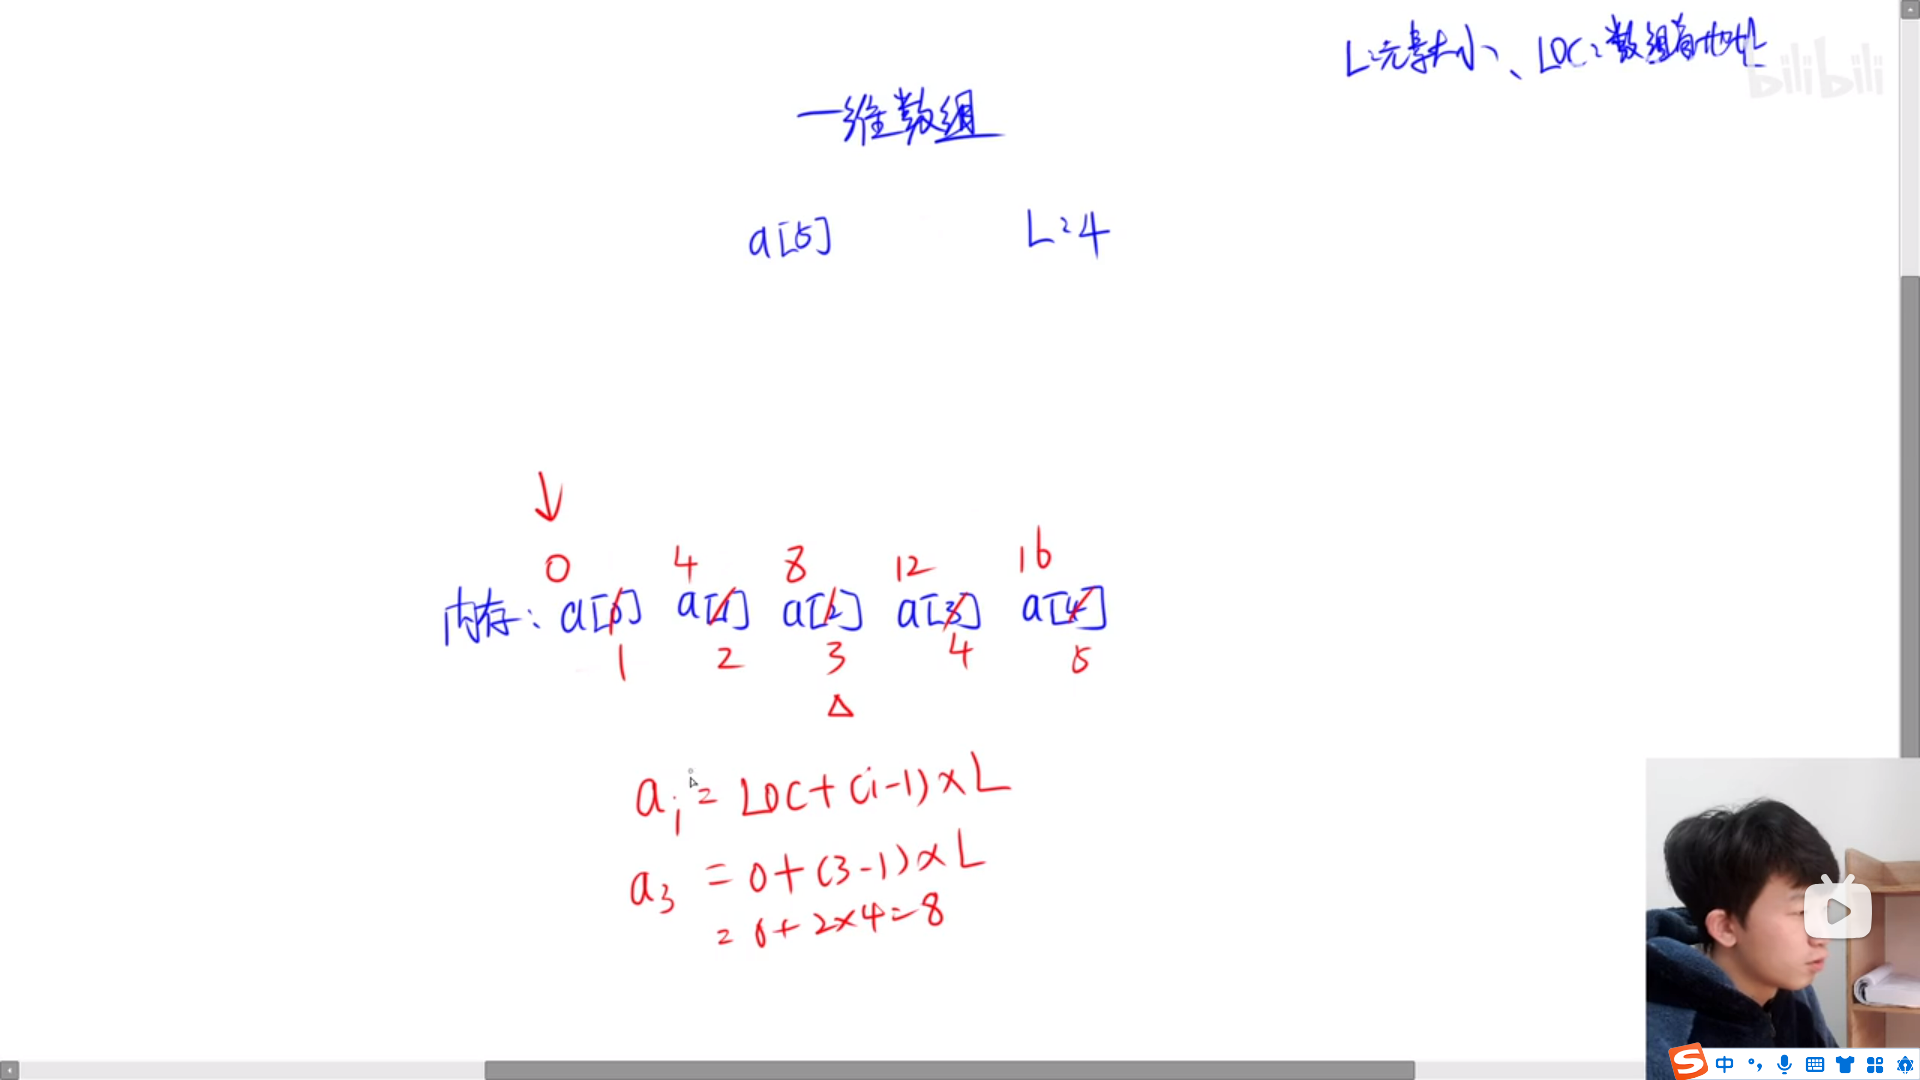 L:元素大小、LOC:数组首地址
bilibili
一维数组
a[5] L:4
0 4 8 12 16
内存: a[0] a[1] a[2] a[3] a[4]
1 2 3 4 5
aᵢ = LOC+(i-1)×L
a₃ = 0+(3-1)×L
= 0+2×4=8
中